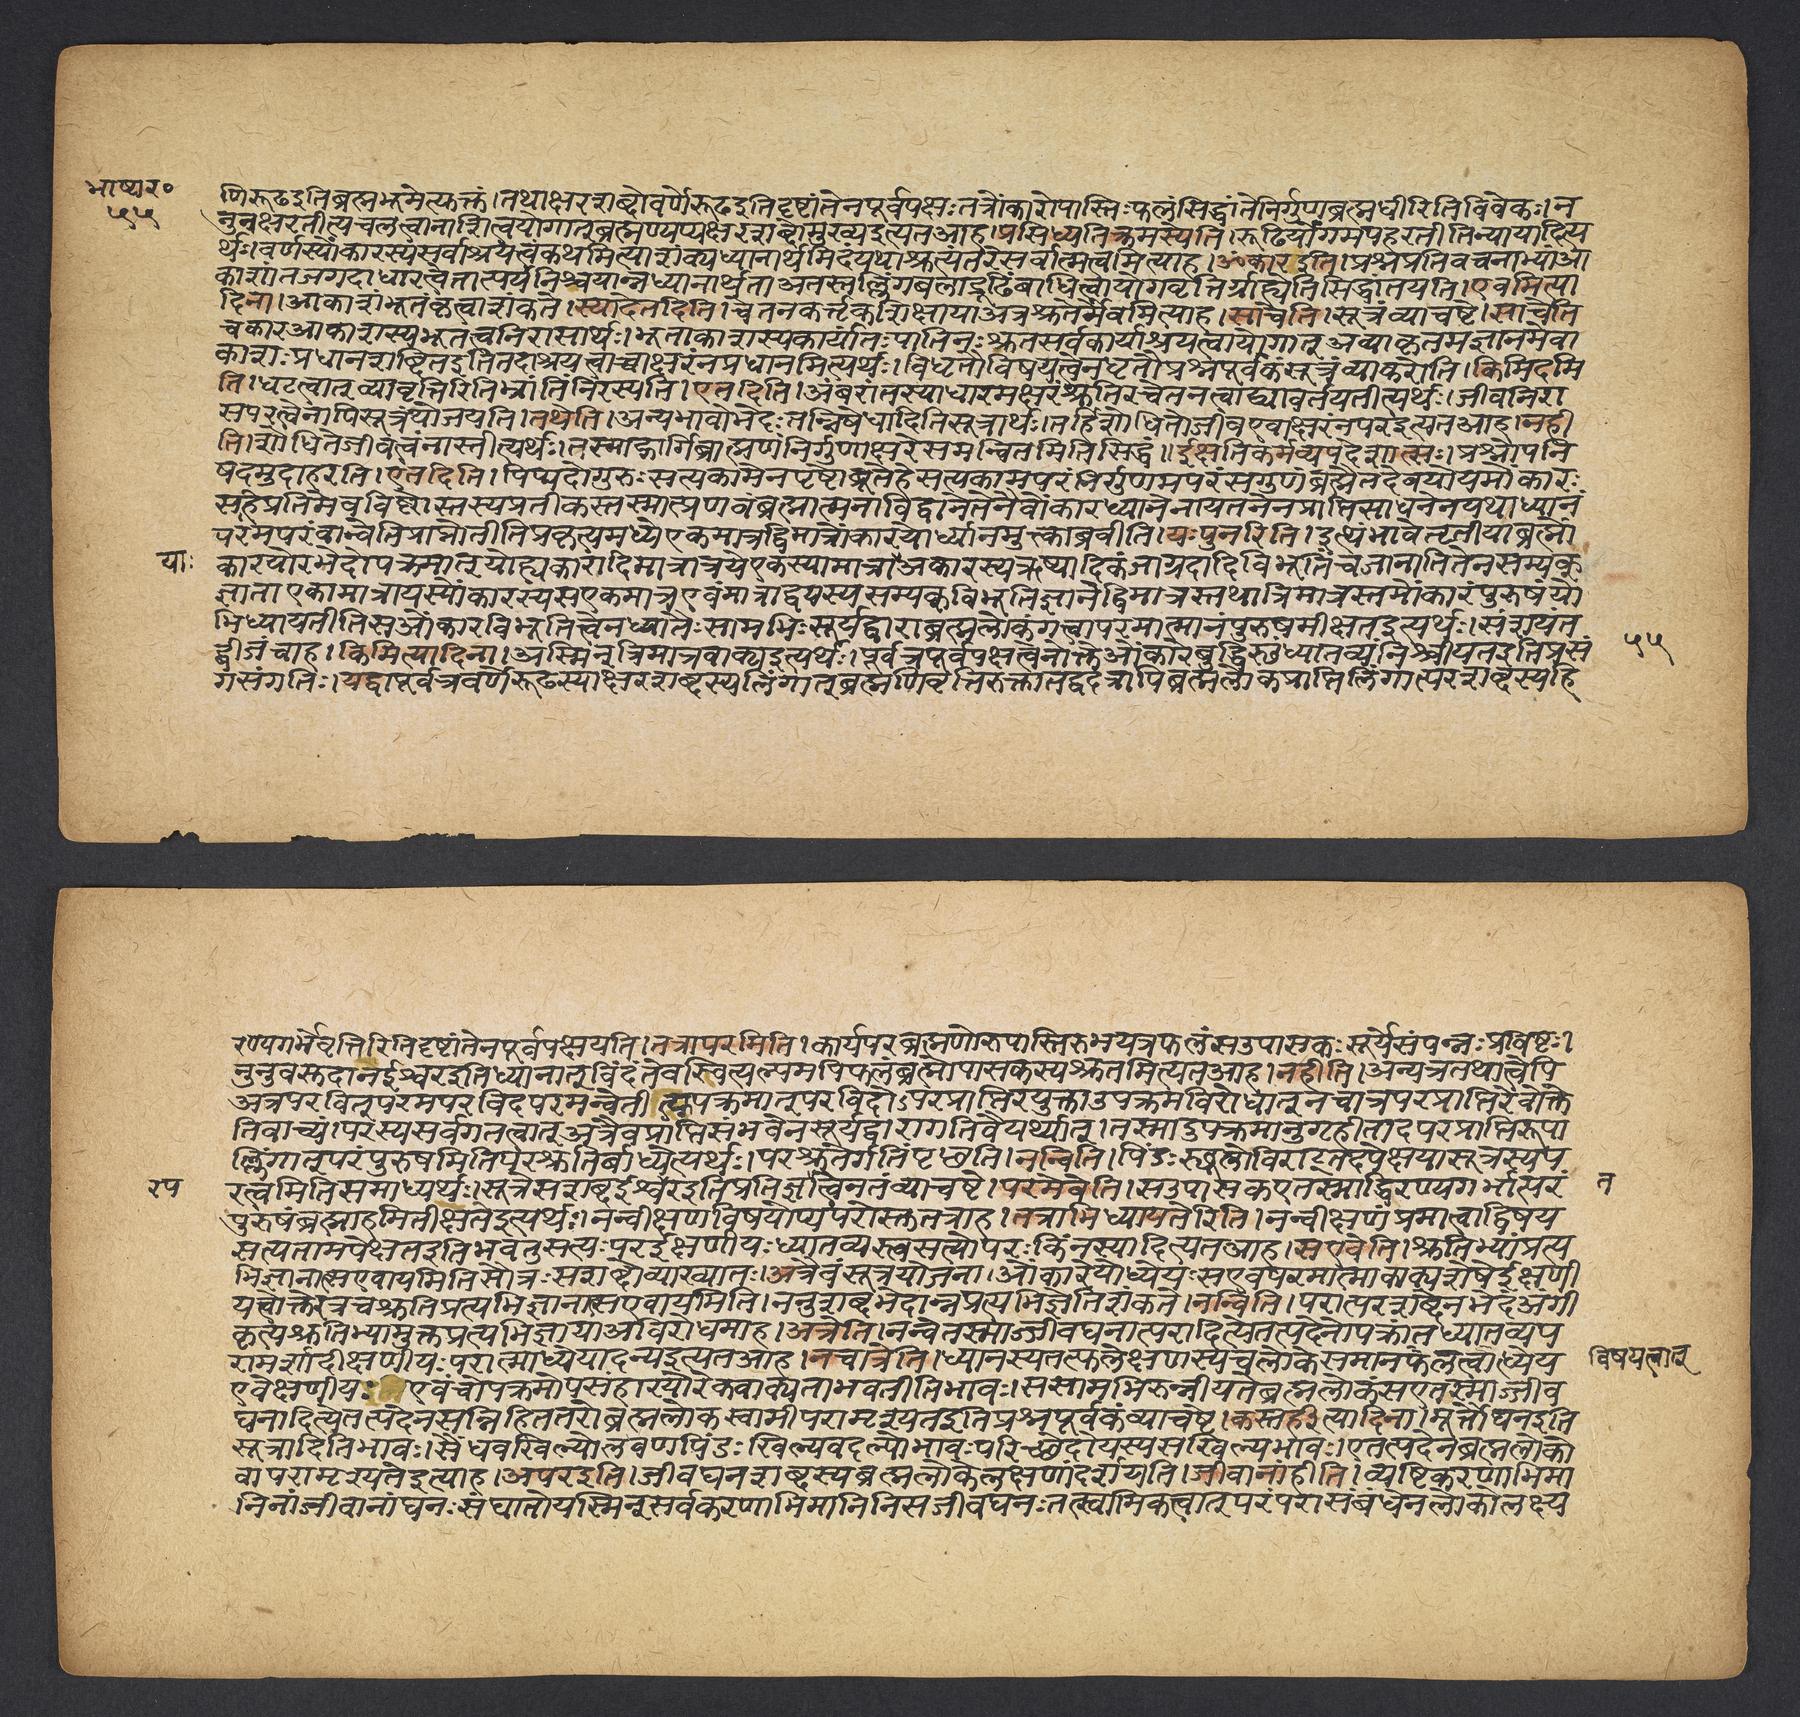 भाष्यर०
५५
णिरूढइतिब्रह्मभूमेत्युक्तं।तथाक्षरशब्दोवर्णेरूढइतिदृष्टांतेनपूर्वपक्षः।तत्रोंकारोपास्तिःफलंसिद्धांतेनिर्गुणब्रह्मधीरितिविवेकः।न
नुनक्षरतीत्यचलत्वानाशित्वयोगात्ब्रह्मण्यप्यक्षरशब्दोमुख्यइत्यतआह।प्रसिध्यतिक्रमस्येति।रूढिर्योगमपहरतीतिन्यायादित्य
र्थः।वर्णस्योंकारस्यसर्वाश्रयत्वंकथमित्याशंक्यध्यानार्थमिदंयथाश्रुत्यंतरेसर्वात्मत्वमित्याह।ॐकारइति।प्रश्नप्रतिवचनाभ्यांआ
काशांतजगदाधारत्वेतात्पर्यनिश्चयान्नध्यानार्थताअतस्तल्लिंगबलाद्रूढिंबाधित्वायोगवृत्तिर्ग्राह्येतिसिद्धांतयति।एवमित्या
दिना।आकाशंभूतंकृत्वाशंकते।स्यादेतदिति।चेतनकर्तृकशिक्षायाअत्रश्रुतेर्मैवमित्याह।साचेति।सूत्रंव्याचष्टे।साचेति
चकारआकाशस्यभूतत्वनिरासार्थः।भूताकाशस्यकार्यांतःपातिनःश्रुतसर्वकार्याश्रयत्वायोगात्अव्याकृतमज्ञानमेवा
काशःप्रधानशब्दितइतितदाश्रयत्वाच्चाक्षरंनप्रधानमित्यर्थः।विधृतौविषयत्वेनधृतौप्रश्नपूर्वकंसूत्रंव्याकरोति।किमिदमि
ति।घटत्वात्व्यावृत्तिरितिभ्रांतिंनिरस्यति।एतदिति।अंबरांतस्याधारमक्षरंश्रुतिरचेतनत्वाद्व्यावर्तयतीत्यर्थः।जीवनिरा
सपरत्वेनापिसूत्रंयोजयति।तथेति।अन्यभावोभेदःतन्निषेधादितिसूत्रार्थः।तर्हिशोधितोजीवएवाक्षरंनपरइत्यतआह।नही
ति।शोधितेजीवत्वंनास्तीत्यर्थः।तस्माद्गार्गिब्राह्मणंनिर्गुणाक्षरेसमन्वितमितिसिद्धं॥ईक्षतिकर्मव्यपदेशात्सः।प्रश्नोपनि
षदमुदाहरति।एतदिति।पिप्पलादोगुरुःसत्यकामेनपृष्टोब्रूतेहेसत्यकामपरंनिर्गुणमपरंसगुणंब्रह्मैतदेवयोयमोंकारः
सहिप्रतिमेवविष्णोस्तस्यप्रतीकस्तस्मात्प्रणवंब्रह्मात्मनाविद्वानेतेनैवोंकारध्यानेनायतनेनप्राप्तिसाधनेनयथाध्यानं
परमपरंवान्वेतिप्राप्नोतीतिप्रकृत्यमध्येएकमात्रद्विमात्रोंकारयोर्ध्यानमुक्त्काब्रवीति।यःपुनरिति।इत्थंभावेतृतीयाब्रह्मों
याः
कारयोरभेदोपक्रमात्योह्यकारादिमात्रात्रयेएकस्यामात्राअकारस्यऋष्यादिकंजाग्रदादिविभूतिंचजानातितेनसम्यक्
ज्ञाताएकामात्रायस्योंकारस्यसएकमात्रएवंमात्राद्वयस्यसम्यक्विभूतिज्ञानेद्विमात्रस्तथात्रिमात्रस्तमोंकारंपुरुषंयो
भिध्यायतीतिसओंकारविभूतित्वेनध्यातेःसामभिःसूर्यद्वाराब्रह्मलोकंगत्वापरमात्मानंपुरुषमीक्षतइत्यर्थः।संशयंत
द्बीजंचाह।किमित्यादिना।अस्मिन्त्रिमात्रवाक्यइत्यर्थः।पूर्वत्रपूर्वपक्षत्वेनोक्तेओंकारेबुद्धिस्थंध्यातव्यंनिश्चीयतइतिप्रसं
५५
गसंगतिः।यद्वापूर्वत्रवर्णरूढस्याक्षरशब्दस्यलिंगात्ब्रह्मणिवृत्तिरुक्तातद्वदत्रापिब्रह्मलोकप्राप्तिलिंगात्परशब्दस्यहि
रण्यगर्भेवृत्तिरितिदृष्टांतेनपूर्वपक्षयति।तत्रापरमिति।कार्यपरब्रह्मणोरुपास्तिरुभयत्रफलंसउपासकःसूर्येसंपन्नःप्रविष्टः।
नुनुवस्तदानईश्वरइतिध्यानात्विंदतेवस्वित्यल्पमपिफलंब्रह्मोपासकस्यश्रुतमित्यतआह।नहीति।अन्यत्रतथात्वेपि
अत्रपरवित्परमपरविदपरमन्वेतीत्युपक्रमात्परविदोऽपरप्राप्तिरयुक्ताउपक्रमविरोधात्नचात्रपरप्राप्तिरेवोक्ते
तिवाच्यं।परस्यसर्वगतत्वात्अत्रैवप्राप्तिसंभवेनसूर्यद्वारागतिवैयर्थ्यात्।तस्मादुपक्रमानुगृहीतादपरप्राप्तिरूपा
ल्लिंगात्परंपुरुषमितिपरश्रुतिर्बाध्येत्यर्थः।परश्रुतेर्गतिंपृछति।नन्विति।पिंडःस्थूलोविराट्तदपेक्षयासूत्रस्यप
रप
रत्वमितिसमाध्यर्थः।सूत्रेसशब्दईश्वरइतिप्रतिज्ञात्वेनतंव्याचष्टे।परमेवेति।सउपासकएतस्माद्धिरण्यगर्भात्परं
त
पुरुषंब्रह्माहमितीक्षतेइत्यर्थः।नन्वीक्षणविषयोप्यपरोस्तुतत्राह।तत्राभिध्यायतेरिति।नन्वीक्षणंप्रमात्वाद्विषय
सत्यतामपेक्षतइतिभवतुसत्यःपरईक्षणीयःध्यातव्यस्त्वसत्योपरःकिंनस्यादित्यतआह।सएवेति।श्रुतिभ्यांप्रत्य
भिज्ञानात्सएवायमितिसौत्रःसशब्दोव्याख्यातः।अत्रैवंसूत्रयोजना।ओंकारेयोध्येयःसएवपरमात्मावाक्यशेषेईक्षणी
यत्वोक्तेरत्रचश्रुतिप्रत्यभिज्ञानात्सएवायमिति।ननुशब्दभेदान्नप्रत्यभिज्ञेतिशंकते।नन्विति।परात्परशब्देनभेदंअंगी
कृत्यश्रुतिभ्यामुक्तप्रत्यभिज्ञायाअविरोधमाह।अत्रेति।नन्वेतस्माज्जीवघनात्परादित्येतत्पदेनोपक्रांतध्यातव्यप
रामर्शादीक्षणीयःपरात्माध्येयादन्यइत्यतआह।नचात्रेति।ध्यानस्यतत्फलेक्षणस्यचलोकेसमानफलत्वाध्येय
विषयत्वात्
एवेक्षणीयःएवंचोपक्रमोपसंहारयोरेकवाक्यताभवतीतिभावः।ससामभिरुन्नीयतेब्रह्मलोकंसएतस्माज्जीव
घनादित्येतत्पदेनसन्निहिततरोब्रह्मलोकस्वामीपरामृश्यतइतिप्रश्नपूर्वकंव्याचष्टे।कस्तर्हीत्यादिना।मूर्तोघनइति
सूत्रादितिभावः।सैंधवखिल्योलवणपिंडःखिल्यवदल्पोभावःपरिच्छेदोयस्यसखिल्यभावः।एतत्पदेनब्रह्मलोको
वापरामृश्यतेइत्याह।अपरइति।जीवघनशब्दस्यब्रह्मलोकेलक्षणांदर्शयति।जीवानांहीति।व्यष्टिकरणाभिमा
निनांजीवानांघनःसंघातोयस्मिन्सर्वकरणाभिमानिनिसजीवघनःतत्स्वामिकत्वात्परंपरासंबंधेनलोकोलक्ष्य